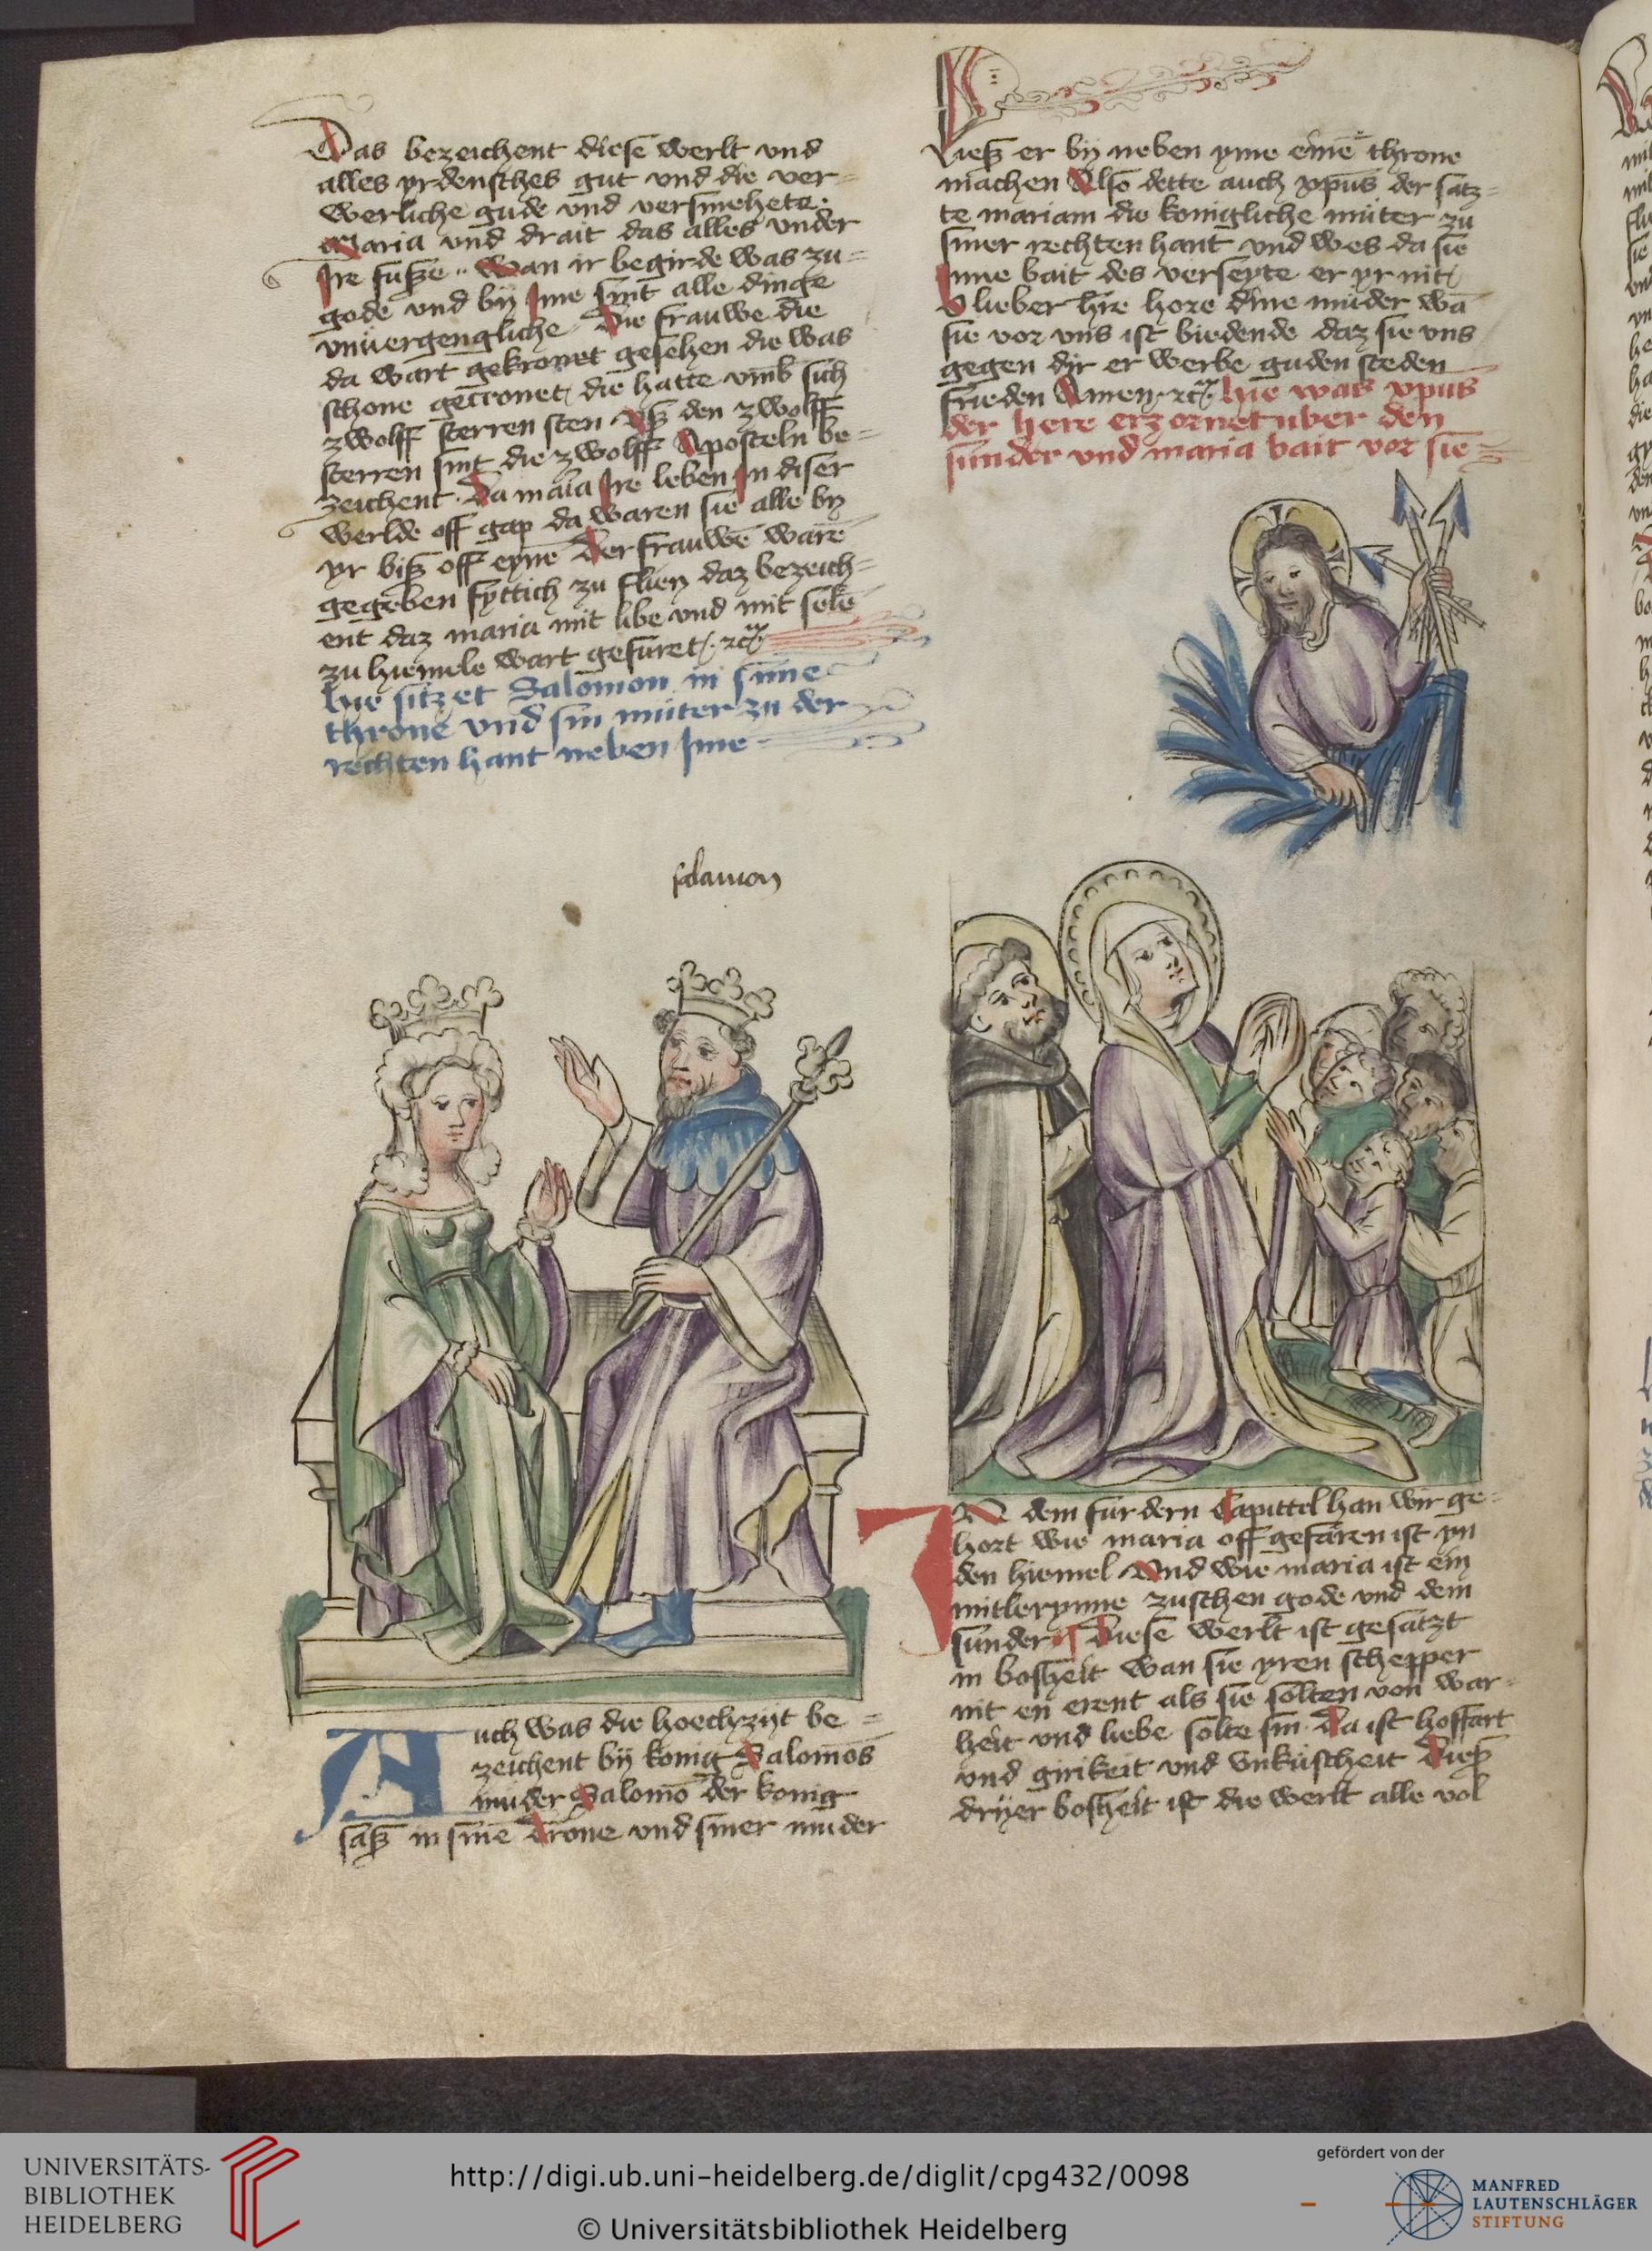 Das bezeichent diese werlt und
alles yrdensches gut und die ver=
werliche gude und versmehete.
Maria und drait das alles under
Jre fusze. Wan ir begirde was zu=
gode und bij Jme sint alle dinge
unuergengliche Die frauwe die
da wart gekronet gesehen die was
schone gecronet die hatte vmb sich
zwolff sterren sten Vß den zwolff
sterren sint die zwolff Aposteln be=
zeichent. Da maia Jre leben Jn diser
werlde off gap da waren sie alle by
yr biß off eyne Der frauwē warē
gegeben fyttich zu flien daz bezeich=
ent daz maria mit libe und mit sele
zu hiemele wart gefuret
hie sitzet Salomon in sime
throne und sin muter zu der
rechten hant neben Jme
salamon
Auch was die hoechzijt be=
zeichent bij konig Salomōs
muder Salomō der konig
saß in sinē Trone und siner muder
Ließ er by neben yme einē throne
machen Also dette auch xpūs der satz=
te mariam die konigliche müter zu
siner rechten hant und wes da sie
Jnne bait des verseyte er yr nit
O lieber hre hore dine muder wā
sie vor uns ist biedende daz sie uns
gegen dir er werbe guden steden
frieden Amen hie was xpūs
der here erzornet uber den
sunder und maria bait vor sie
IN dem furdern Capittel han wir ge=
hort wie maria off gefaren ist yn
den hiemel Und wie maria ist ein
mitlerynne zuschen gode und dem
sunder Diese werlt ist gesatzt
in bosheit wan sie yren schepper
nit en erent als sie solten von war=
heit und liebe solte sin. Da ist hoffart
und girikeit und unküscheit Dieß
dryer bosheit ist die werlt alle vol
UNIVERSITÄTS-
BIBLIOTHEK
HEIDELBERG
http://digi.ub.uni-heidelberg.de/diglit/cpg432/0098
© Universitätsbibliothek Heidelberg
gefördert von der
MANFRED
LAUTENSCHLÄGER
STIFTUNG